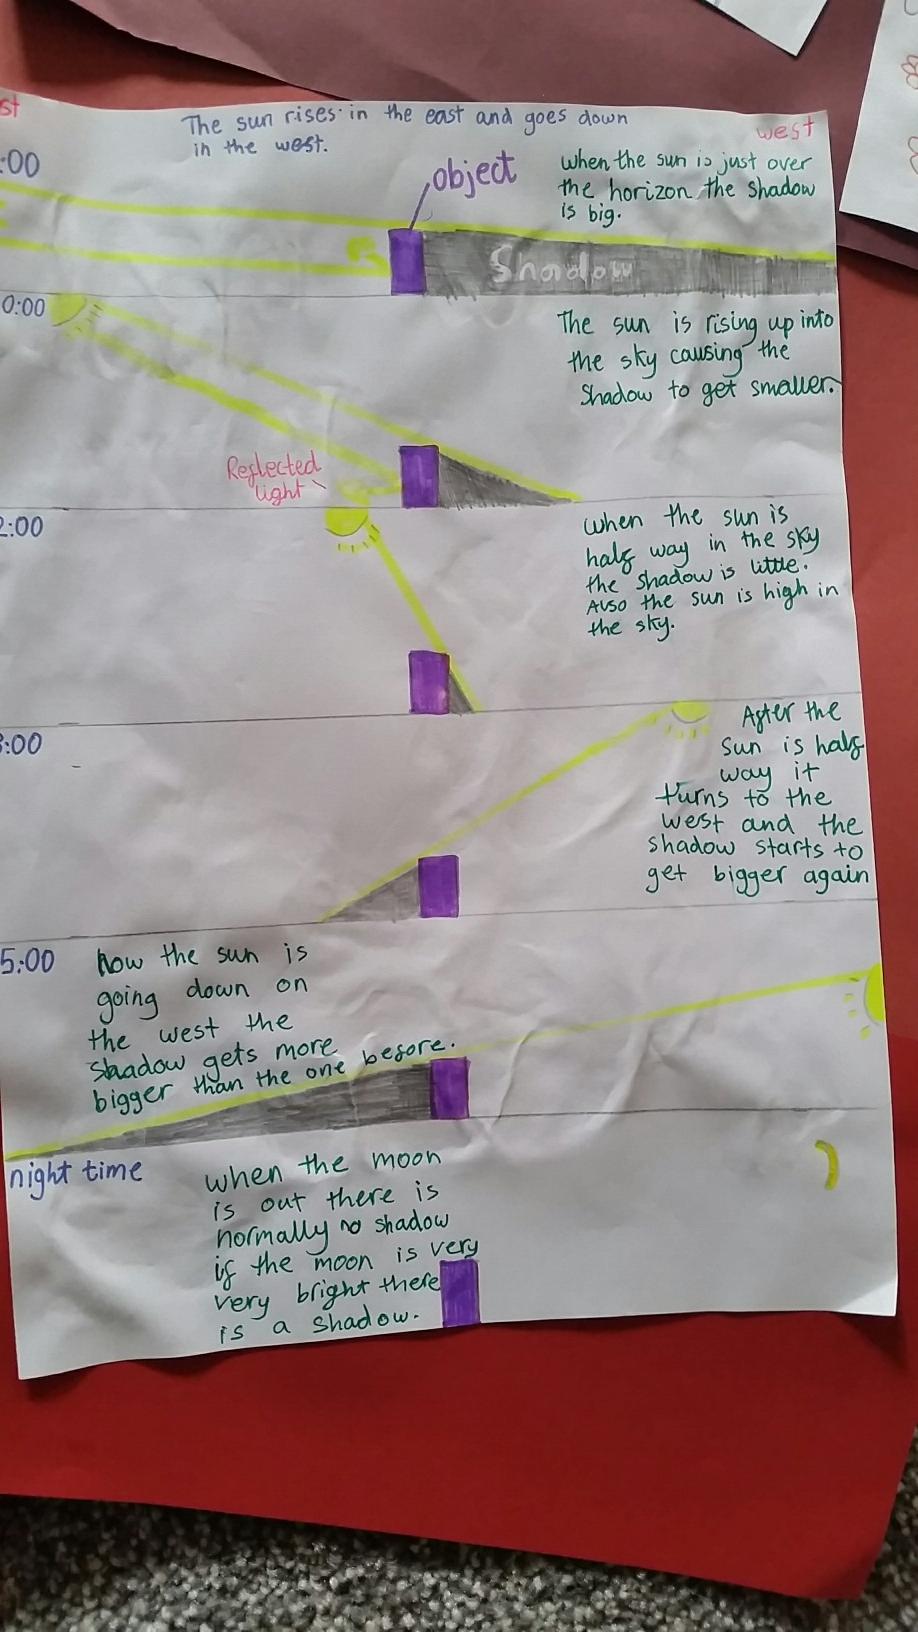 st
The sun rises in the east and goes down
in the west.
west
:00
object
when the sun is just over
the horizon the shadow
is big.
Shadow
0:00
The sun is rising up into
the sky causing the
shadow to get smaller.
Reflected
light
2:00
when the sun is
half way in the sky
the shadow is little.
Also the sun is high in
the sky.
3:00
After the
sun is half
way it
turns to the
west and the
shadow starts to
get bigger again
5:00
now the sun is
going down on
the west the
shadow gets more
bigger than the one before.
night time
when the moon
is out there is
normally no shadow
if the moon is very
very bright there
is a shadow.